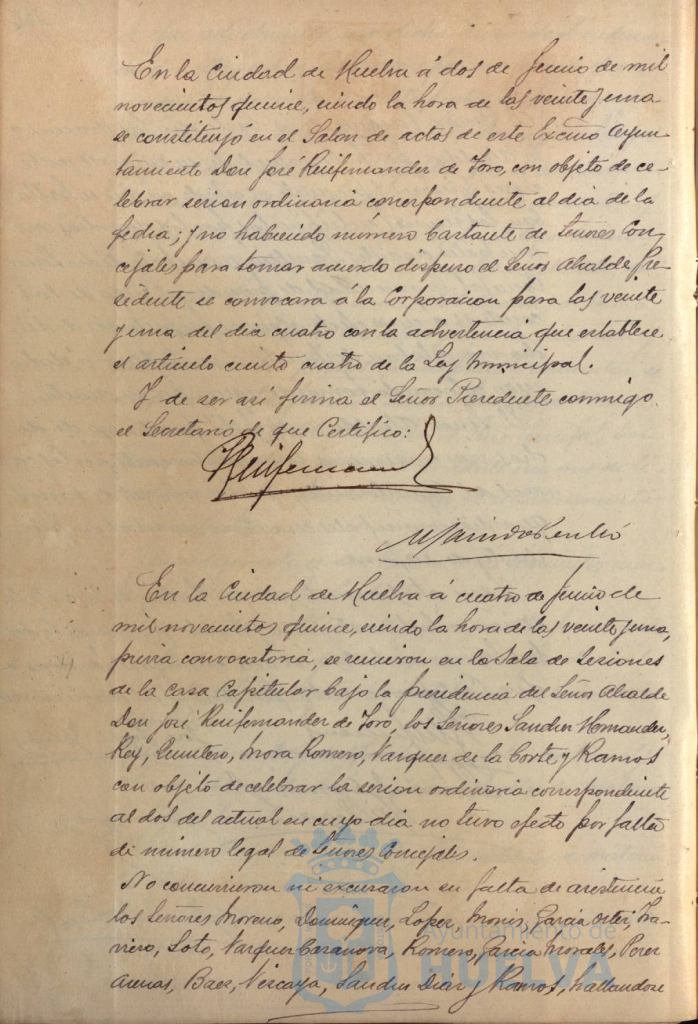 En la Ciudad de Huelva á dos de Junio de mil
novecientos quince, siendo la hora de las veinte y una
se constituyó en el Salon de actos de este Excmo Ayun-
tamiento Don José Quifernandez de Toro, con objeto de ce-
lebrar sesion ordinaria correspondiente al dia de la
fecha; y no habiendo número bastante de Señores Con-
cejales para tomar acuerdo dispuso el Señor Alcalde Pre-
sidente se convocara á la Corporacion para las veinte
y una del dia cuatro con la advertencia que establece
el artículo ciento cuatro de la Ley Municipal.
Y de ser asi firma el Señor Presidente conmigo
el Secretario de que Certifico:
En la Ciudad de Huelva á cuatro de Junio de
mil novecientos quince, siendo la hora de las veinte y una,
previa convocatoria, se reunieron en la Sala de Sesiones
de la Casa Capitular bajo la presidencia del Señor Alcalde
Don José Quifernandez de Toro, los Señores Sanchez Hernandez,
Rey, Quintero, Mora Romero, Vazquez de la Corte y Ramos
con objeto de celebrar la sesion ordinaria correspondiente
al dos del actual en cuyo dia no tuvo efecto por falta
de número legal de Señores Concejales.
No concurrieron ni excusaron su falta de asistencia
los Señores Moreno, Dominguez, Lopez, Monis, Garcia Ortiz, Tra-
viero, Soto, Vazquez Casanova, Romero, Garcia Morales, Perez
Arenas, Baez, Vizcaya, Sanchez Diaz y Ramos, hallandose
Ayuntamiento de
HUELVA